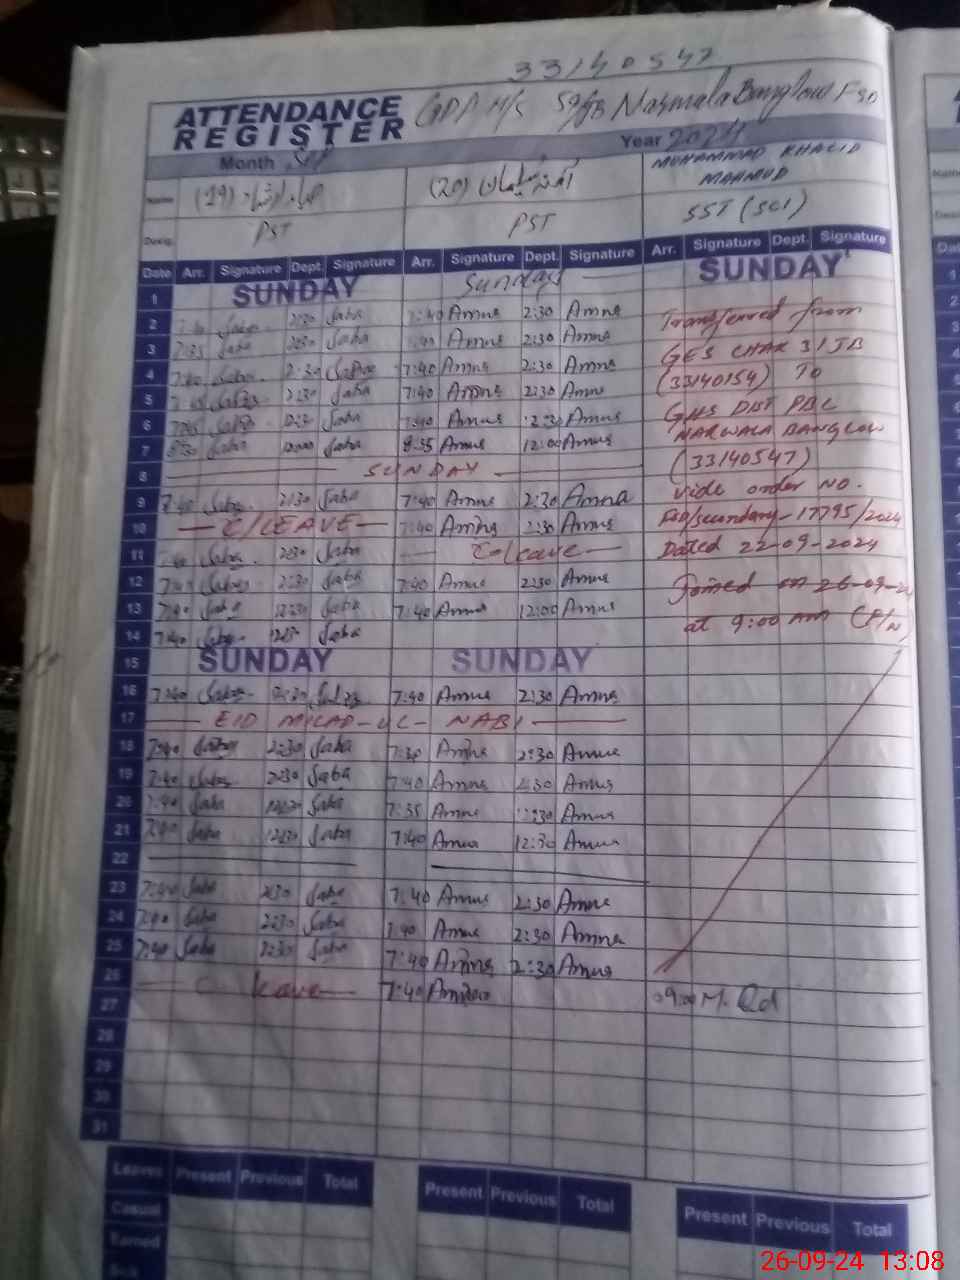 33140547
ATTENDANCE
REGISTER
Narmala Banglow Fsd
Month Sep Year 2024
Name (19) (20) MUHAMMAD KHALID
MAHMUD
Desig. PST PST SST (SCI)
Date Arr. Signature Dept. Signature Arr. Signature Dept. Signature Arr. Signature Dept. Signature
1 SUNDAY Sunday SUNDAY
2 Saba 2:30 Saba 7:40 Amna 2:30 Amna Transferred from
3 7:35 Saba 2:30 Saba 7:40 Amna 2:30 Amna
4 7:40 Saba 2:30 Saba 7:40 Amna 2:30 Amna GES CHAK 31 JB
5 7:45 Saba 2:30 Saba 7:40 Amna 2:30 Amna (33140154) TO
6 7:45 Saba 12:30 Saba 7:40 Amna 12:30 Amna GHS DIST PBC
7 8:30 Saba 12:00 Saba 8:35 Amna 12:00 Amna NARWALA BANGLOW
8 SUNDAY (33140547)
9 7:40 Saba 2:30 Saba 7:40 Amna 2:30 Amna vide order NO.
10 C/LEAVE 7:40 Amna 2:30 Amna FSD/secondary-17795/2024
11 7:40 Saba 2:30 Saba C/leave Dated 22-09-2024
12 7:40 Saba 2:30 Saba 7:40 Amna 2:30 Amna Joined on 26-09-24
13 7:40 Saba 12:30 Saba 7:40 Amna 12:00 Amna at 9:00 AM (F/N)
14 7:40 Saba 12:30 Saba
15 SUNDAY SUNDAY
16 7:40 Saba 2:30 7:40 Amna 2:30 Amna
17 EID MILAD-UL-NABI
18 7:40 Saba 2:30 Saba 7:30 Amna 2:30 Amna
19 7:40 Saba 2:30 Saba 7:40 Amna 2:30 Amna
20 7:40 Saba 12:30 Saba 7:35 Amna 12:30 Amna
21 7:40 Saba 12:30 Saba 7:40 Amna 12:30 Amna
22
23 7:40 Saba 2:30 Saba 7:40 Amna 2:30 Amna
24 7:40 Saba 2:30 Saba 7:40 Amna 2:30 Amna
25 7:40 Saba 2:30 Saba 7:40 Amna 2:30 Amna
26 C leave 7:40 Amna 09:00 M.
27
28
29
30
31
Leaves Present Previous Total Present Previous Total Present Previous Total
Casual
Earned
26-09-24 13:08